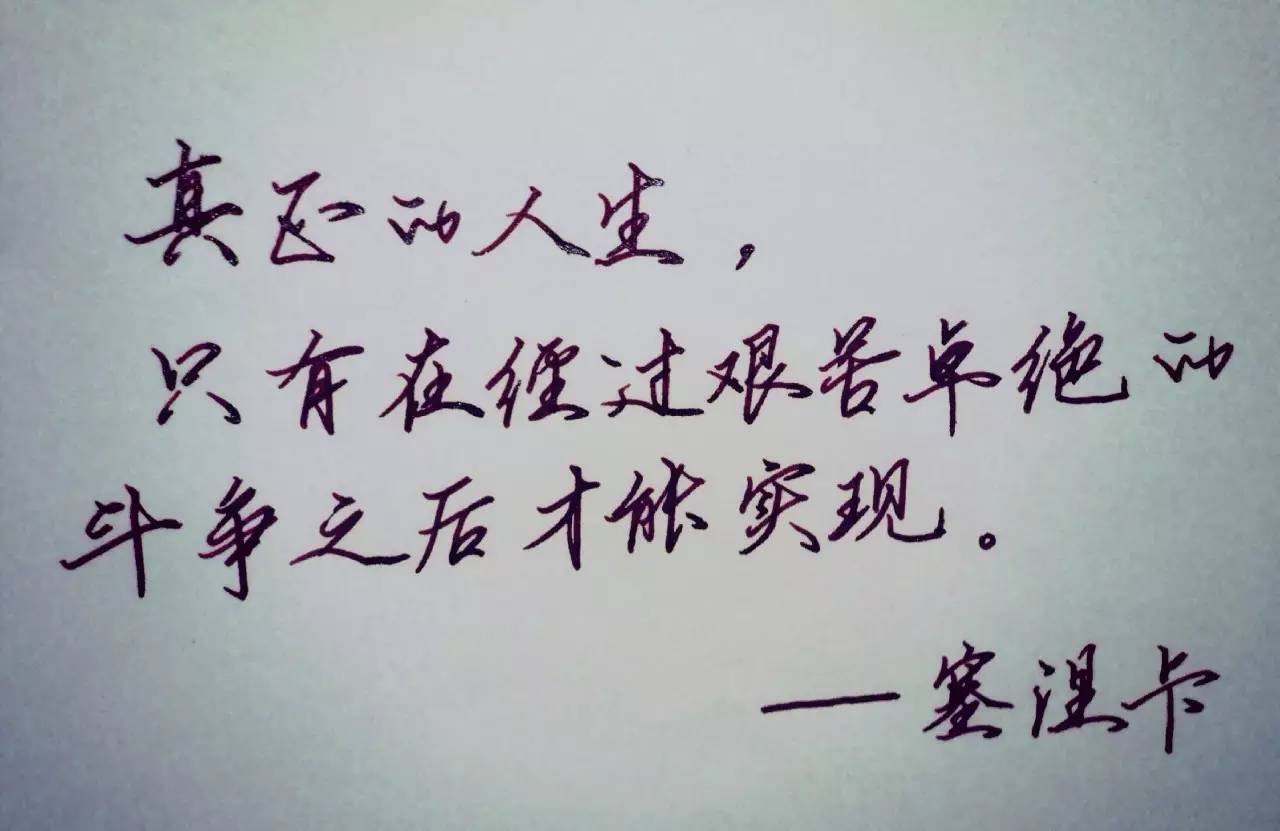 真正的人生，
只有在经过艰苦卓绝的
斗争之后才能实现。
—塞涅卡